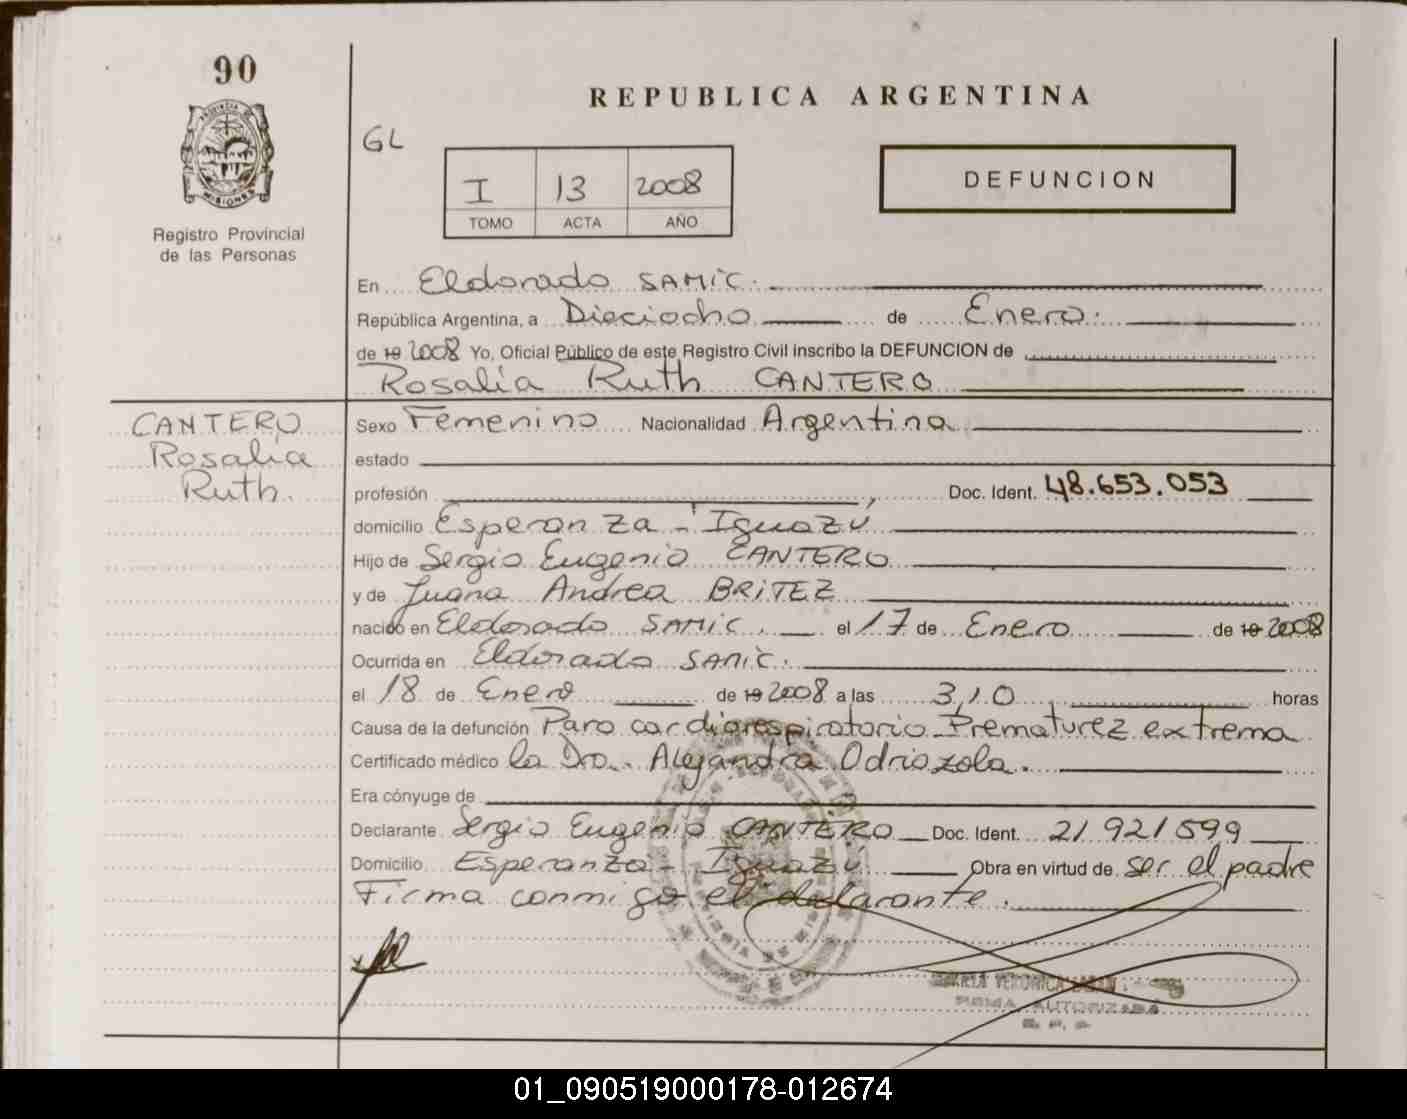 90
REPUBLICA ARGENTINA
GL
I 13 2008
TOMO ACTA AÑO
DEFUNCION
PROVINCIA DE
MISIONES
Registro Provincial
de las Personas
En Eldorado SAMIC.
República Argentina, a Dieciocho de Enero.
de 19 2008 Yo, Oficial Público de este Registro Civil inscribo la DEFUNCION de
Rosalia Ruth CANTERO
CANTERO
Rosalia
Ruth.
Sexo Femenino Nacionalidad Argentina
estado
profesión , Doc. Ident. 48.653.053
domicilio Esperanza - Iguazú
Hijo de Sergio Eugenio CANTERO
y de Juana Andrea BRITEZ
nacido en Eldorado SAMIC. el 17 de Enero de 19 2008
Ocurrida en Eldorado SAMIC.
el 18 de Enero de 19 2008 a las 3,10 horas
Causa de la defunción Paro cardiorespiratorio - Prematurez extrema
Certificado médico la Dra. Alejandra Odriozola.
Era cónyuge de
Declarante Sergio Eugenio CANTERO Doc. Ident. 21 921 599
Domicilio Esperanza - Iguazú Obra en virtud de ser el padre
Firma conmigo el declarante.
VERONICA
FIRMA AUTORIZADA
01_090519000178-012674